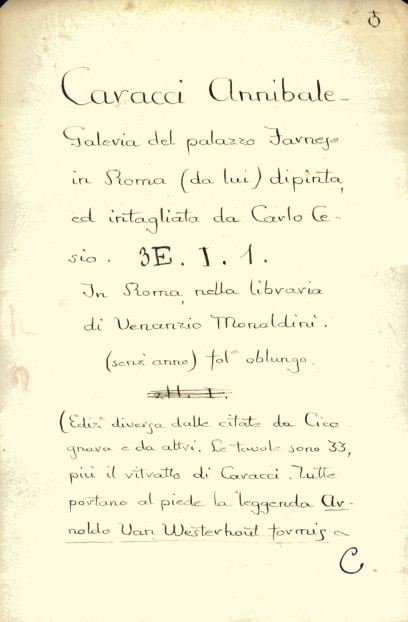 Caracci Annibale -
Galeria del palazzo Farnese
in Roma (da lui) dipinta,
ed intagliata da Carlo Ce-
sio. 3E. I. 1.
In Roma, nella libraria
di Venanzio Monaldini.
(senz' anno) fol° oblungo.
(Ediz diversa dalle citate da Cico
gnara e da altri. Le tavole sono 33,
più il ritratto di Caracci. Tutte
portano al piede la leggenda Ar-
noldo Van Westerhout formis
C.